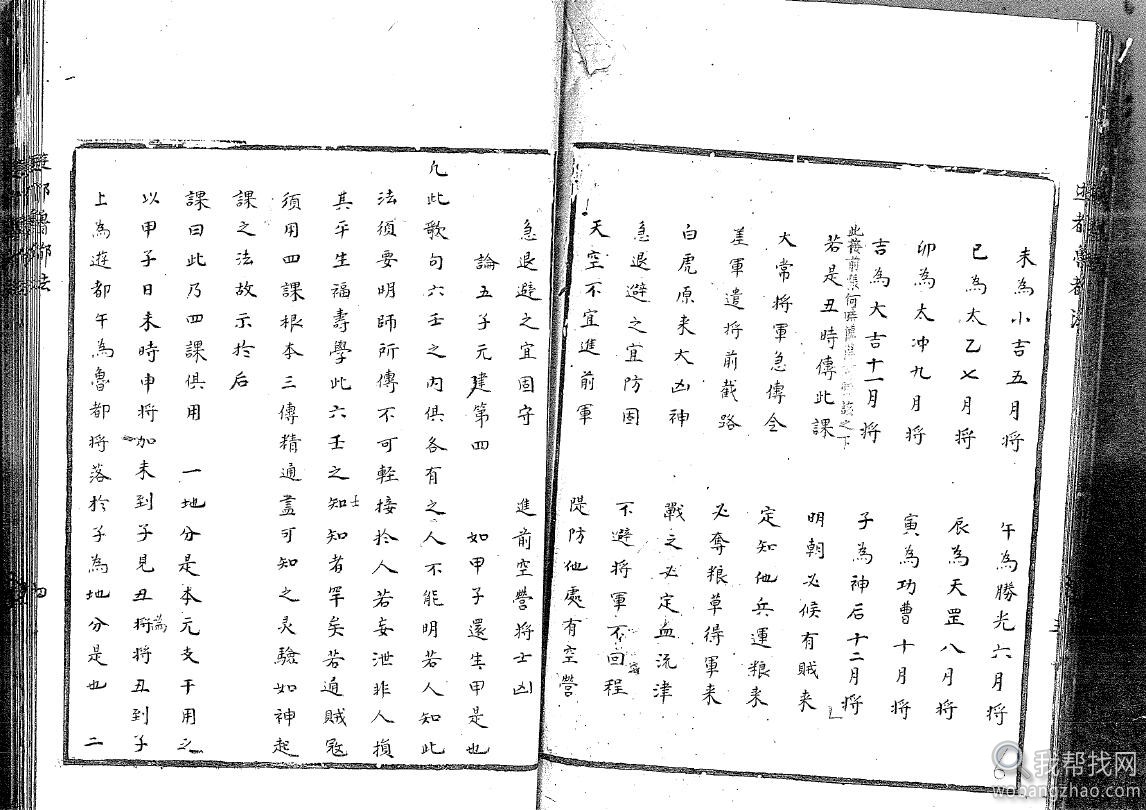 未為小吉五月將　午為勝光六月將
巳為太乙七月將　辰為天罡八月將
卯為太冲九月將　寅為功曹十月將
吉為大吉十一月將　子為神后十二月將
若是丑時傳此課　明朝必候有賊來
大常將軍急傳令　定知他兵運粮來
差軍遣將前截路　必奪粮草得軍來
白虎原來大凶神　戰之必定血流津
急退避之宜防固　不避將軍不回程
天空不宜進前軍　隄防他處有空營
急退避之宜固守　進前空營將士凶
論五子元建第四　如甲子還生甲是也
凡此歌句六壬之內俱各有之人不能明若人知此
法須要明師所傳不可輕接於人若妄泄非人損
其平生福壽學此六壬之知士知者罕矣若遁賊寇
須用四課根本三傳精通盡可知之灵驗如神起
課之法故示於后
課曰此乃四課俱用　一地分是本元支干用之
以甲子日未時申將加未到子見丑將為將丑到子
上為遊都午為魯都將落於子為地分是也　二
遊都魯都法
四
我帮找网
wobangzhao.com